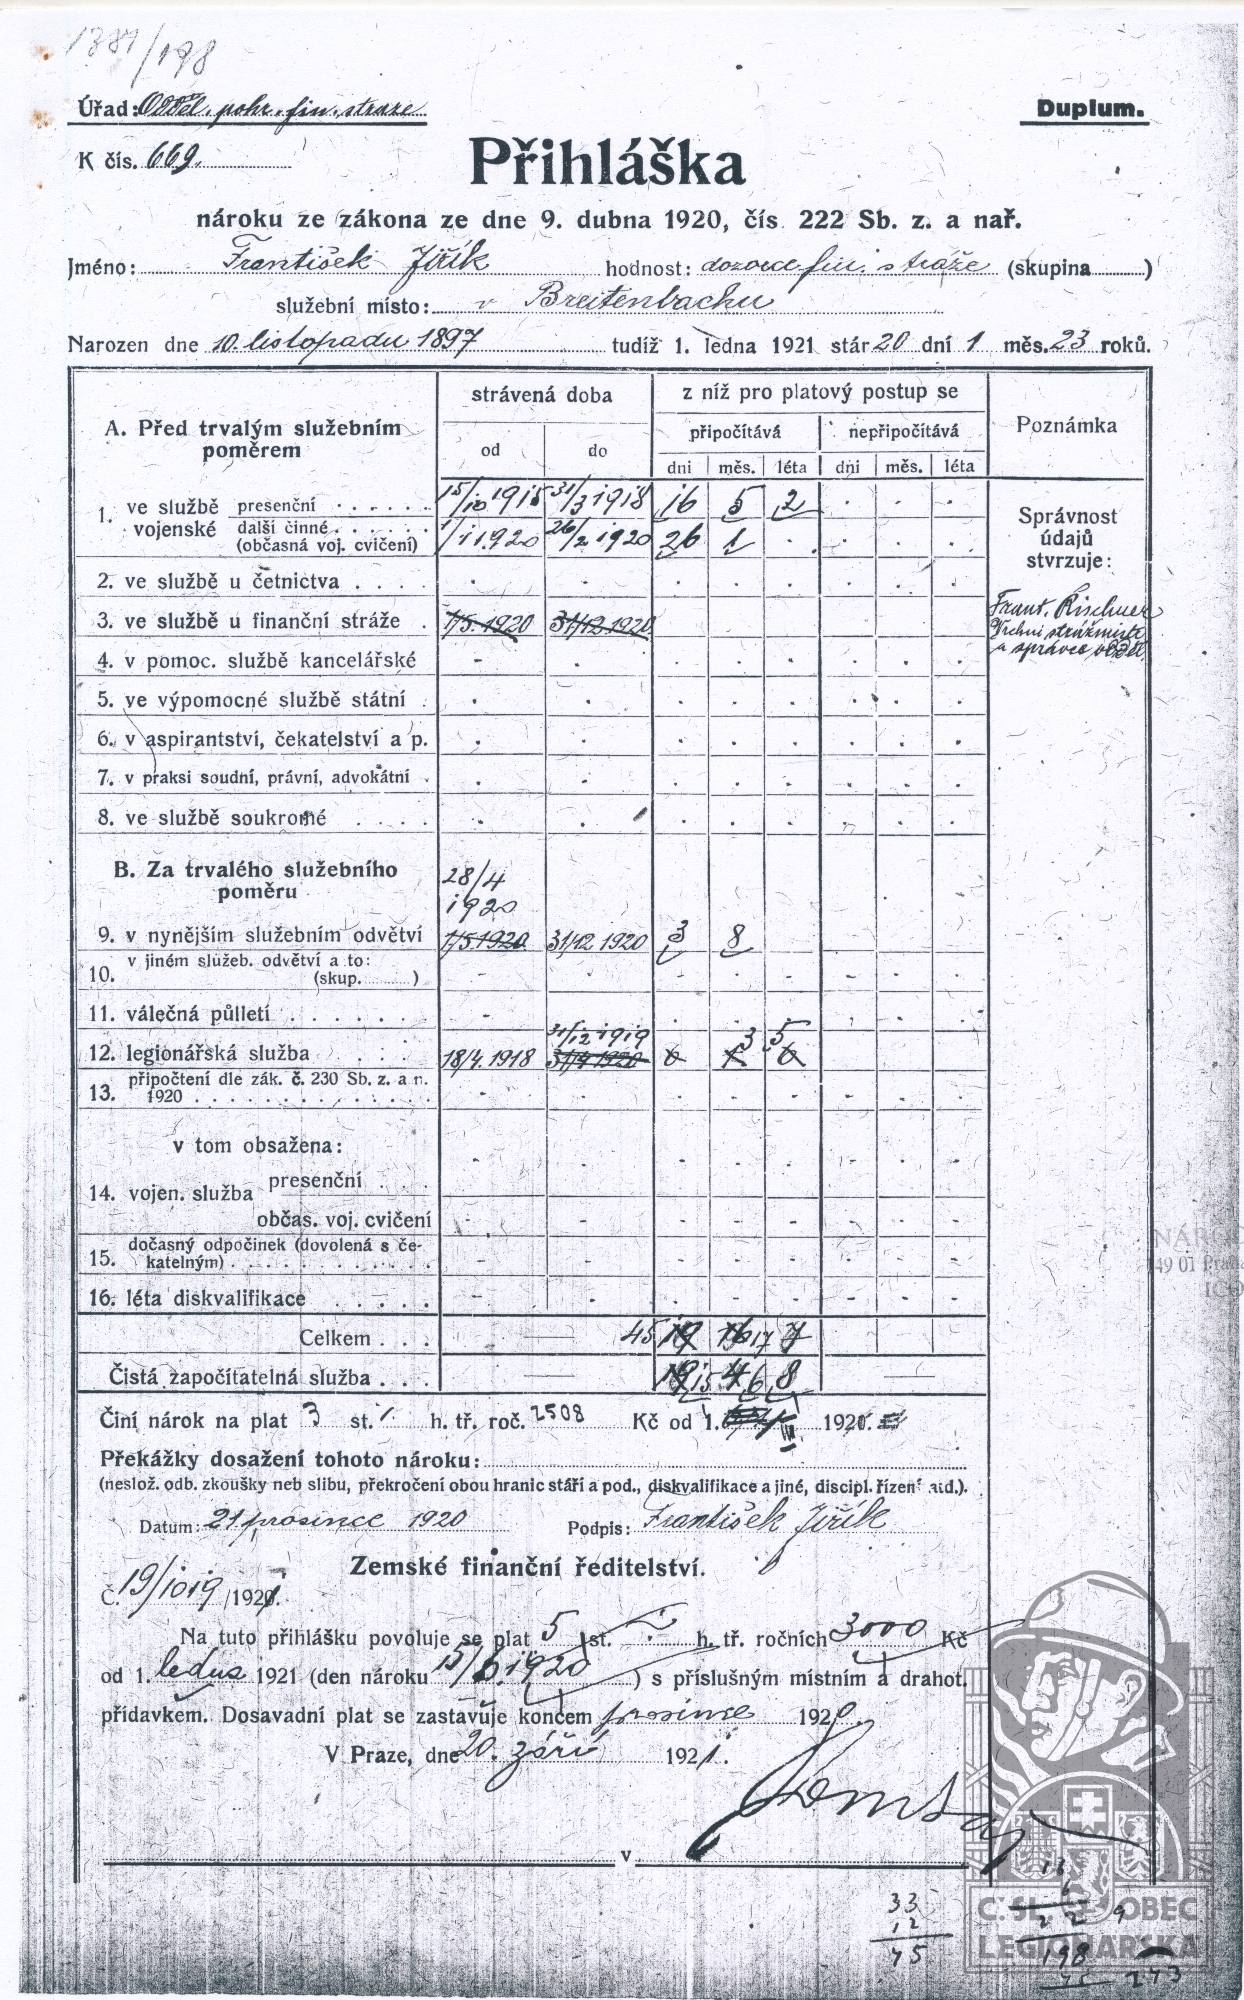 1381/198
Úřad: Odděl. pohr. fin. straže
Duplum.
K čís. 669.
Přihláška
nároku ze zákona ze dne 9. dubna 1920, čís. 222 Sb. z. a nař.
Jméno: František Jiřík hodnost: dozorce fin. stráže (skupina )
služební místo: v Breitenbachu
Narozen dne 10. listopadu 1897 tudíž 1. ledna 1921 stár 20 dní 1 měs. 23 roků.
A. Před trvalým služebním poměrem
strávená doba
z níž pro platový postup se
Poznámka
od do
připočítává nepřipočítává
dni měs. léta dni měs. léta
1. ve službě vojenské presenční 15/10 1915 31/3 1918 16 5 2
další činné (občasná voj. cvičení) 1/1 1920 26/2 1920 26 1
Správnost
údajů
stvrzuje:
2. ve službě u četnictva
Frant. Kischner
3. ve službě u finanční stráže 1/5. 1920 31/12 1920
Vrchní strážmistr
a správce odděl.
4. v pomoc. službě kancelářské
5. ve výpomocné službě státní
6. v aspirantství, čekatelství a p.
7. v praksi soudní, právní, advokátní
8. ve službě soukromé
B. Za trvalého služebního
poměru
28/4
1920
9. v nynějším služebním odvětví 1/5 1920 31/12 1920 3 8
10. v jiném služeb. odvětví a to:
(skup. )
11. válečná půlletí
31/12 1919 3 5
12. legionářská služba 18/4. 1918
13. připočtení dle zák. č. 230 Sb. z. a n.
1920
v tom obsažena:
14. vojen. služba presenční
občas. voj. cvičení
15. dočasný odpočinek (dovolená s če-
katelným)
16. léta diskvalifikace
Celkem 45 19 16 17 7
Čistá započítatelná služba 19 15 4 6 8
Činí nárok na plat 3 st. h. tř. roč. 2508 Kč od 1. 1920
Překážky dosažení tohoto nároku:
(neslož. odb. zkoušky neb slibu, překročení obou hranic stáří a pod., diskvalifikace a jiné, discipl. řízení atd.).
Datum: 21 prosince 1920 Podpis: František Jiřík
Zemské finanční ředitelství.
Č. 19/1019 /1921.
Na tuto přihlášku povoluje se plat 5 st. h. tř. ročních 3000 Kč
od 1. ledna 1921 (den nároku 15/6. 1920 ) s příslušným místním a drahot.
přídavkem. Dosavadní plat se zastavuje koncem prosince 1920.
V Praze, dne 20. září 1921.
v
33
12
45
22 9
198
45 243
NÁRO
149 01 Praha
IČO
Č. SL. OBEC
LEGIONÁŘSKÁ